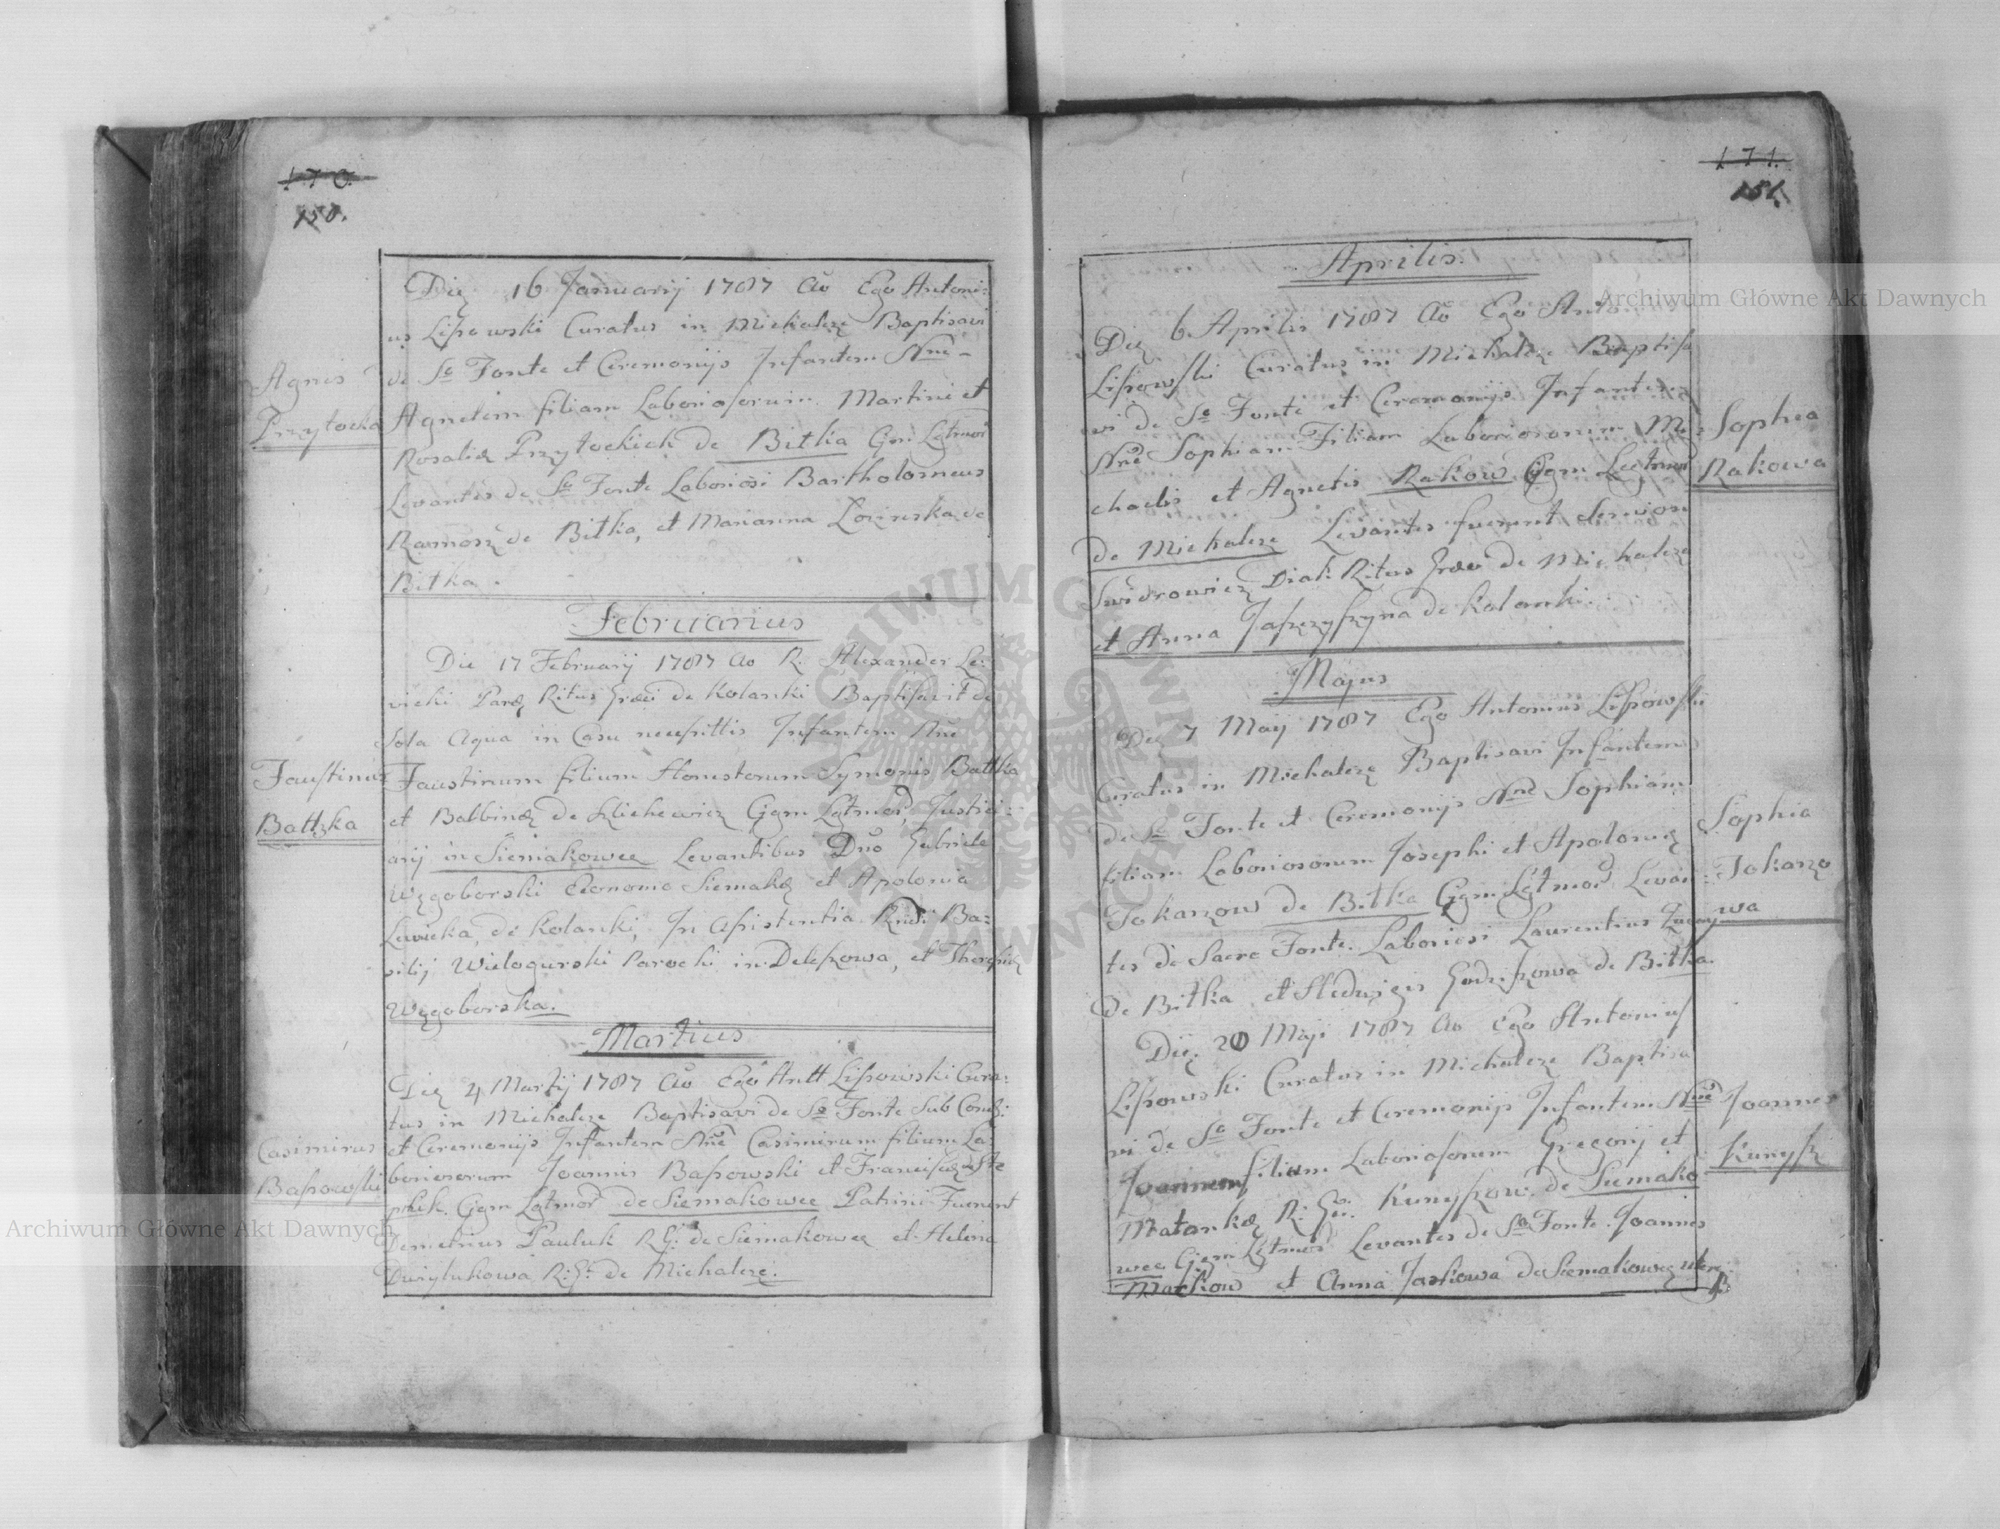 170.
150.
Agnes
Przytocka
Die 16 Januarij 1787 Ao Ego Antoni-
us Lipowski Curatus in Michalcze Baptisavi
de So Fonte et Ceremonijs Infantem Nne
Agnetem filiam Laboriosorum Martini et
Rosaliæ Przytockich de Bitka Gm Lgtmor
Levantes de So Fonte Laboriosi Bartholomeus
de Bitka, et Marianna de
Bitka.
Februarius
Faustinus
Battzka
Die 17 February 1787 Ao R. Alexander Le-
vicki Ritus Græci de Kolanki Baptisavit de
Sola Aqua in Casu necessittis Infantem Nne
Faustinum filium Honestorum Symonis Battka
et Balbinæ de Ggm Lgtmor, Justici-
arij in Siemakowce Levantibus Dno Gabriele
Węgoborski Economo Siemakæ et Apolonia
Lewicka, de Kolanki, In Asistentia Rndi Ba-
silij Wielogurski Parochi in Deleszowa, et Theresiæ
Węgoborska.
Martius
Casimirus
Bassowski
Die 4 Martij 1787 Ao Ego Antt Lipowski Cura-
tus in Michalcze Baptisavi de So Fonte Sub Condi
et Ceremonijs Infantem Nne Casimirum filium La-
boriosorum Joannis Bassowski et Franciscæ Ste
phik. Ggm Lgtmor de Siemakowce Patrini Fuerunt
Demetrius Pauluk R.G. de Siemakowce et Helena
Dwrytukowa R:G: de Michalcze.
171.
151.
Aprilis.
Die 6 Aprilis 1787 Ao Ego Anto.
Lipowski Curatus in Michalcze Baptisa
vi de So Fonte et Ceremonijs Infantem
Nne Sophiam Filiam Laboriosorum Mi-
chaelis et Agnetis Rakow Ggm Legtmor
de Michalcze Levantes fuerunt
Swidrowicz Diak Ritus Græci de Michalcze
et Anna de Kolanki.
Sophia
Rakowa
Majus
Die 7 Maij 1787 Ego Antonius Lipowski
Curatus in Michalcze Baptisavi Infantem
de So Fonte et Ceremonijs Nne Sophiam
filiam Laboriosorum Josephi et Apoloniæ
Tokarzow de Bitka Ggm Lgtmor Levan-
tes de Sacro Fonte Laboriosi Laurentius
de Bitka et Hedwigis de Bitka.
Sophia
Tokarzo
wa
Die 20 Maji 1787 Ao Ego Antonius
Lipowski Curatus in Michalcze Baptisa
vi de So Fonte et Ceremonijs Infantem Nne
Joannem filium Laboriosorum Gregorij et
Matankæ R: Gi: Kunyszow de Siemako
wce Ggm Lgtmor Levantes de So Fonte Joannes
Markow et Anna Jaskowa de Siemakowce
Joannes
Kunysz
Archiwum Główne Akt Dawnych
Archiwum Główne Akt Dawnych
ARCHIWUM GŁÓWNE AKT DAWNYCH